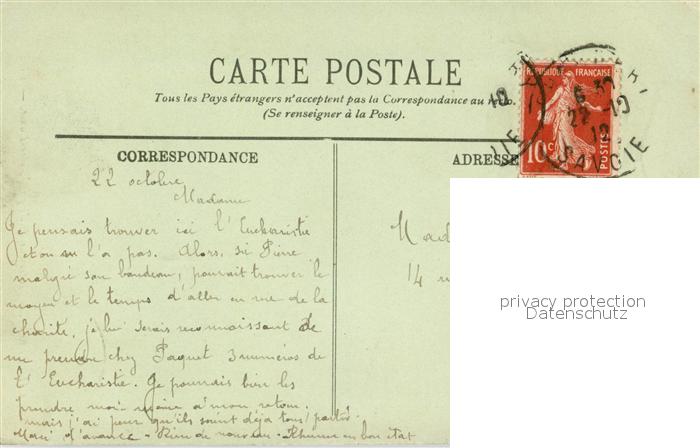 CARTE POSTALE
Tous les Pays étrangers n'acceptent pas la Correspondance au
(Se renseigner à la Poste).
REPUBLIQUE FRANÇAISE
10 c.
POSTES
6 30
22-10
12
SAVOIE
CORRESPONDANCE
ADRESSE
22 octobre
Madame
Je pensais trouver ici l'Eucharistie
et on ne l'a pas. Alors, si Pierre
malgré son bandeau, pouvait trouver le
moyen et le temps d'aller en rue de la
charité, je lui serais reconnaissant de
me prendre chez Paquet 3 numéros de
l'Eucharistie. Je pourrais bien les
prendre moi-même à mon retour,
mais j'ai peur qu'ils soient déjà tous partis.
Merci d'avance - Rien de nouveau - en bon état
Mad
14
privacy protection
Datenschutz